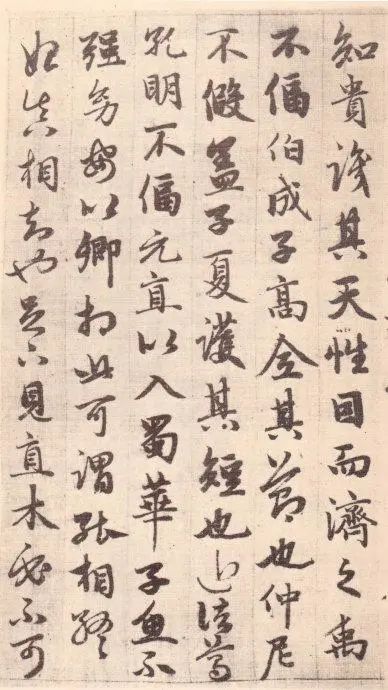 知貴識其天性因而濟之禹
不偪伯成子高全其節也仲尼
不假蓋子夏護其短也近諸葛
孔明不偪元直以入蜀華子魚不
强幼安以卿相此可謂能相終
始真相知也足下見直木必不可